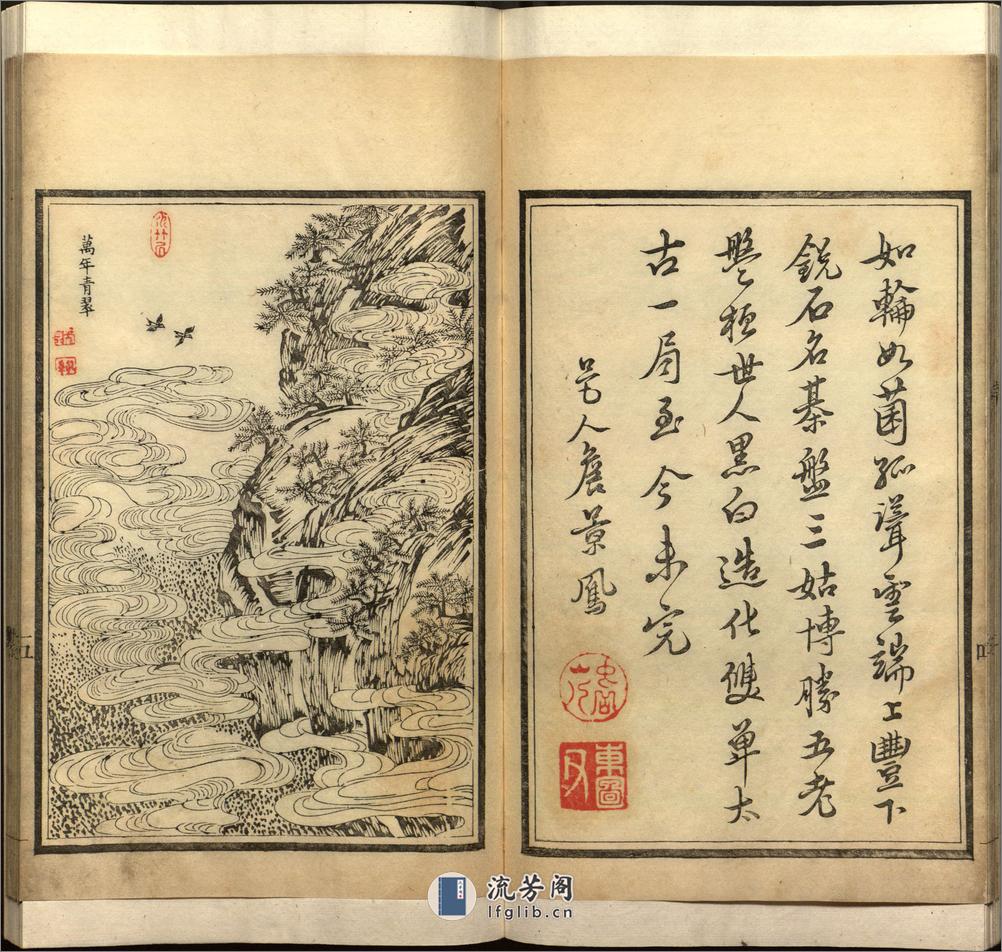 如輪如菌孤聳雲端上豐下
銳石名棊盤三姑博勝五老
盤桓世人黑白造化雙單太
古一局至今未完
詹景鳳
東圖
萬年青翠
流芳阁
lfglib.cn